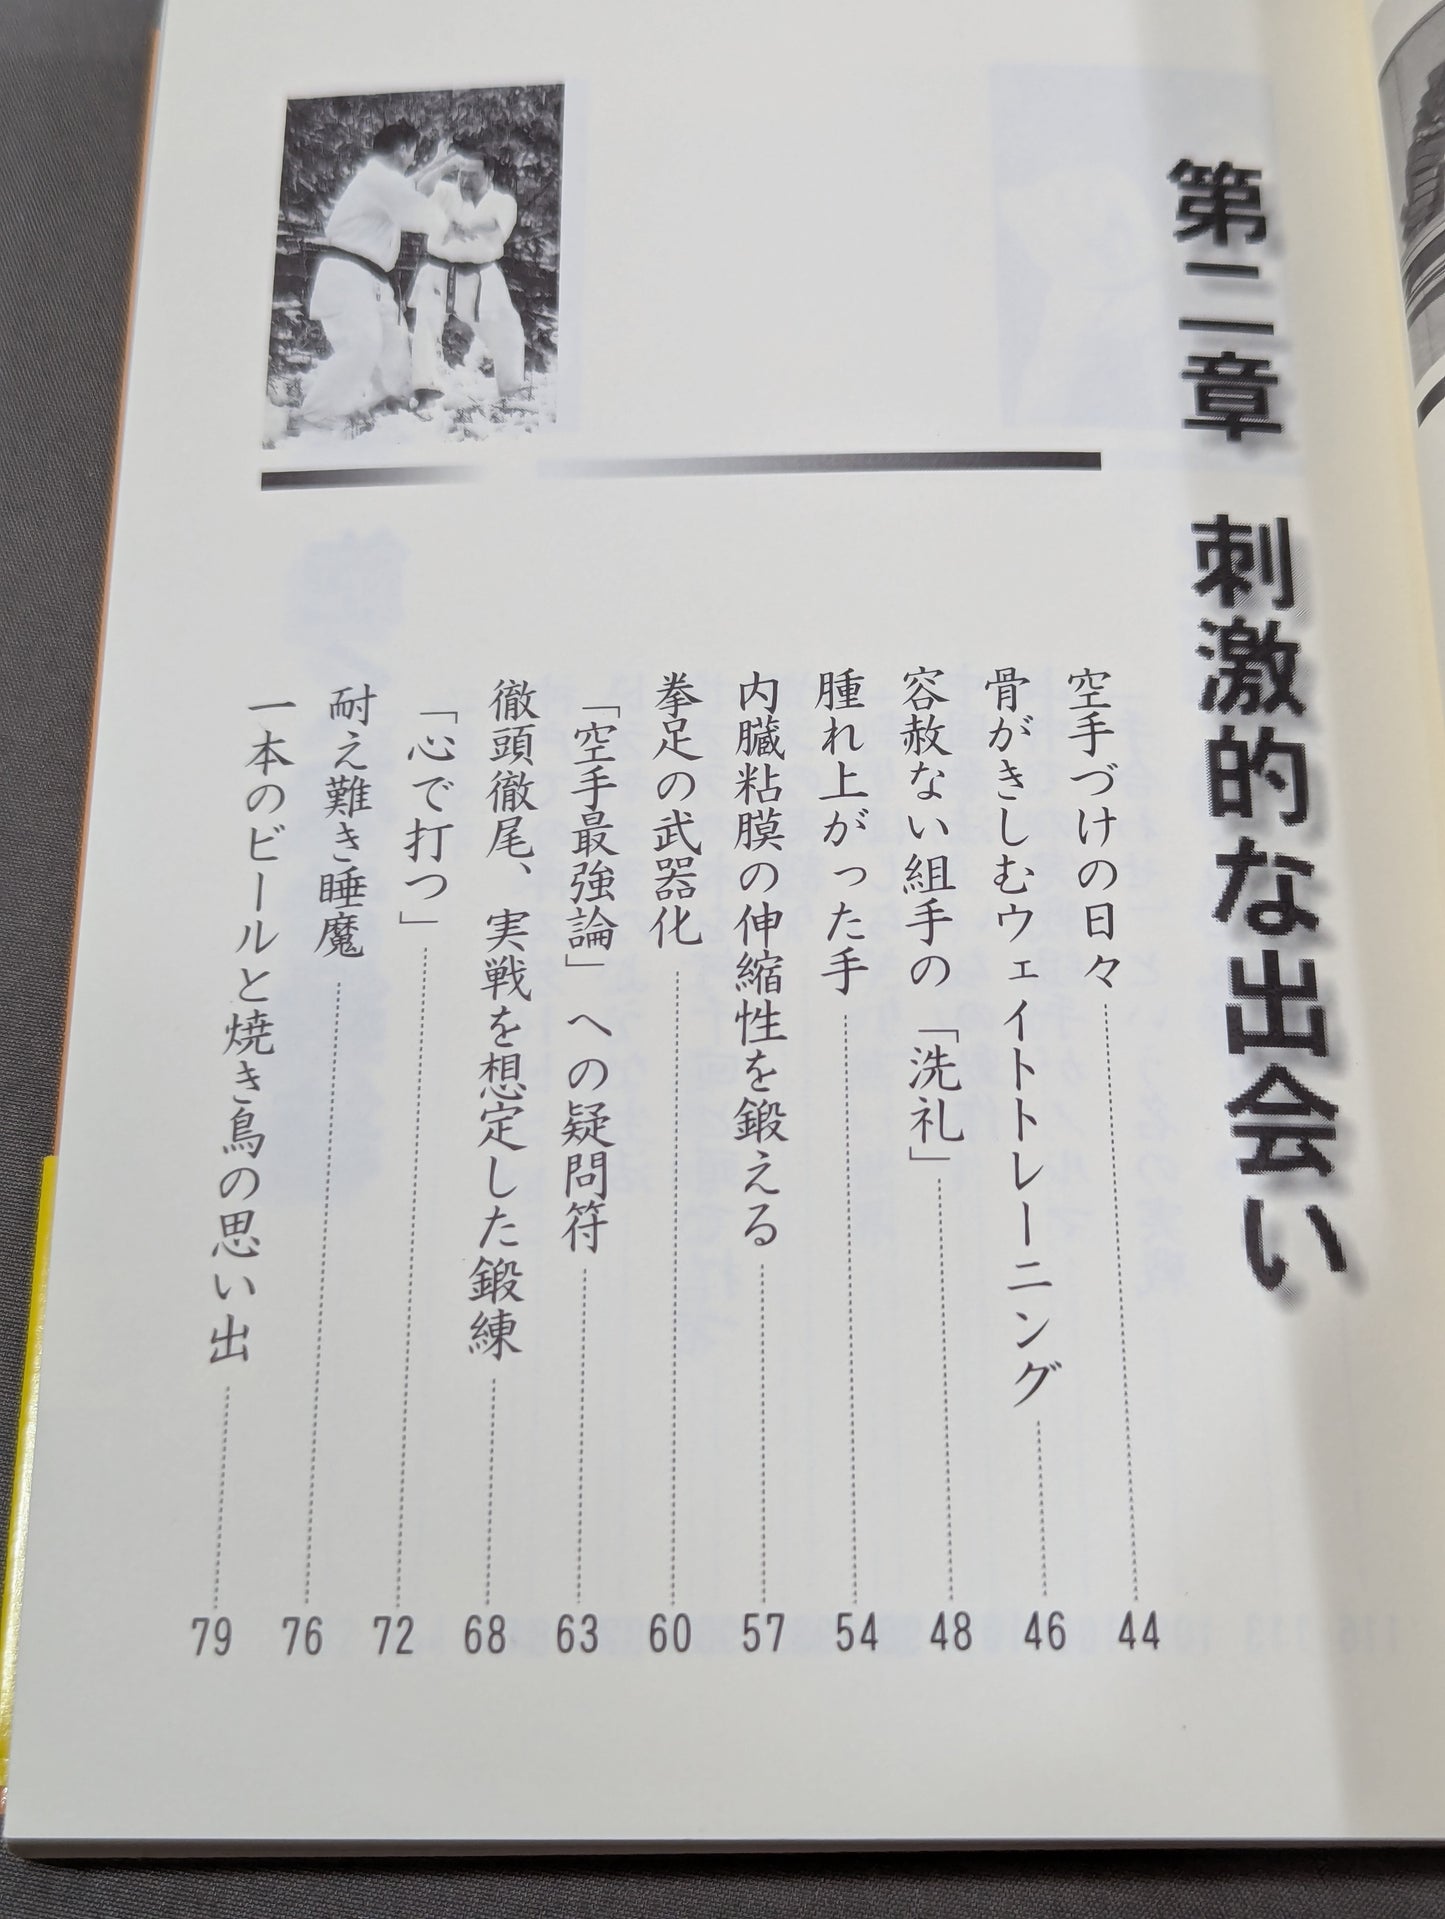 第二章 刺激的な出会い
空手づけの日々 44
骨がきしむウェイトトレーニング 46
容赦ない組手の「洗礼」 48
腫れ上がった手 54
内臓粘膜の伸縮性を鍛える 57
拳足の武器化 60
「空手最強論」への疑問符 63
徹頭徹尾、実戦を想定した鍛練 68
「心で打つ」 72
耐え難き睡魔 76
一本のビールと焼き鳥の思い出 79